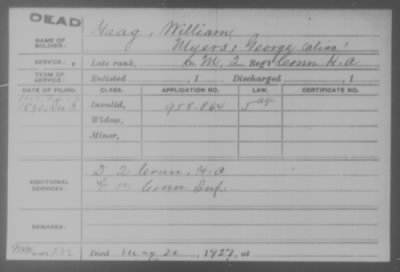 DEAD
NAME OF SOLDIER: Haag, William
Myers, George (alias)
SERVICE: Late rank, M, 2 Regt Conn H.A
TERM OF SERVICE: Enlisted , 1 Discharged , 1
DATE OF FILING. CLASS. APPLICATION NO. LAW. CERTIFICATE NO.
1890, Invalid, 958.864
Widow,
Minor,
ADDITIONAL SERVICES: D 2 Conn, H.A
14 Conn Inf.
REMARKS:
Died May 20, 1927, at